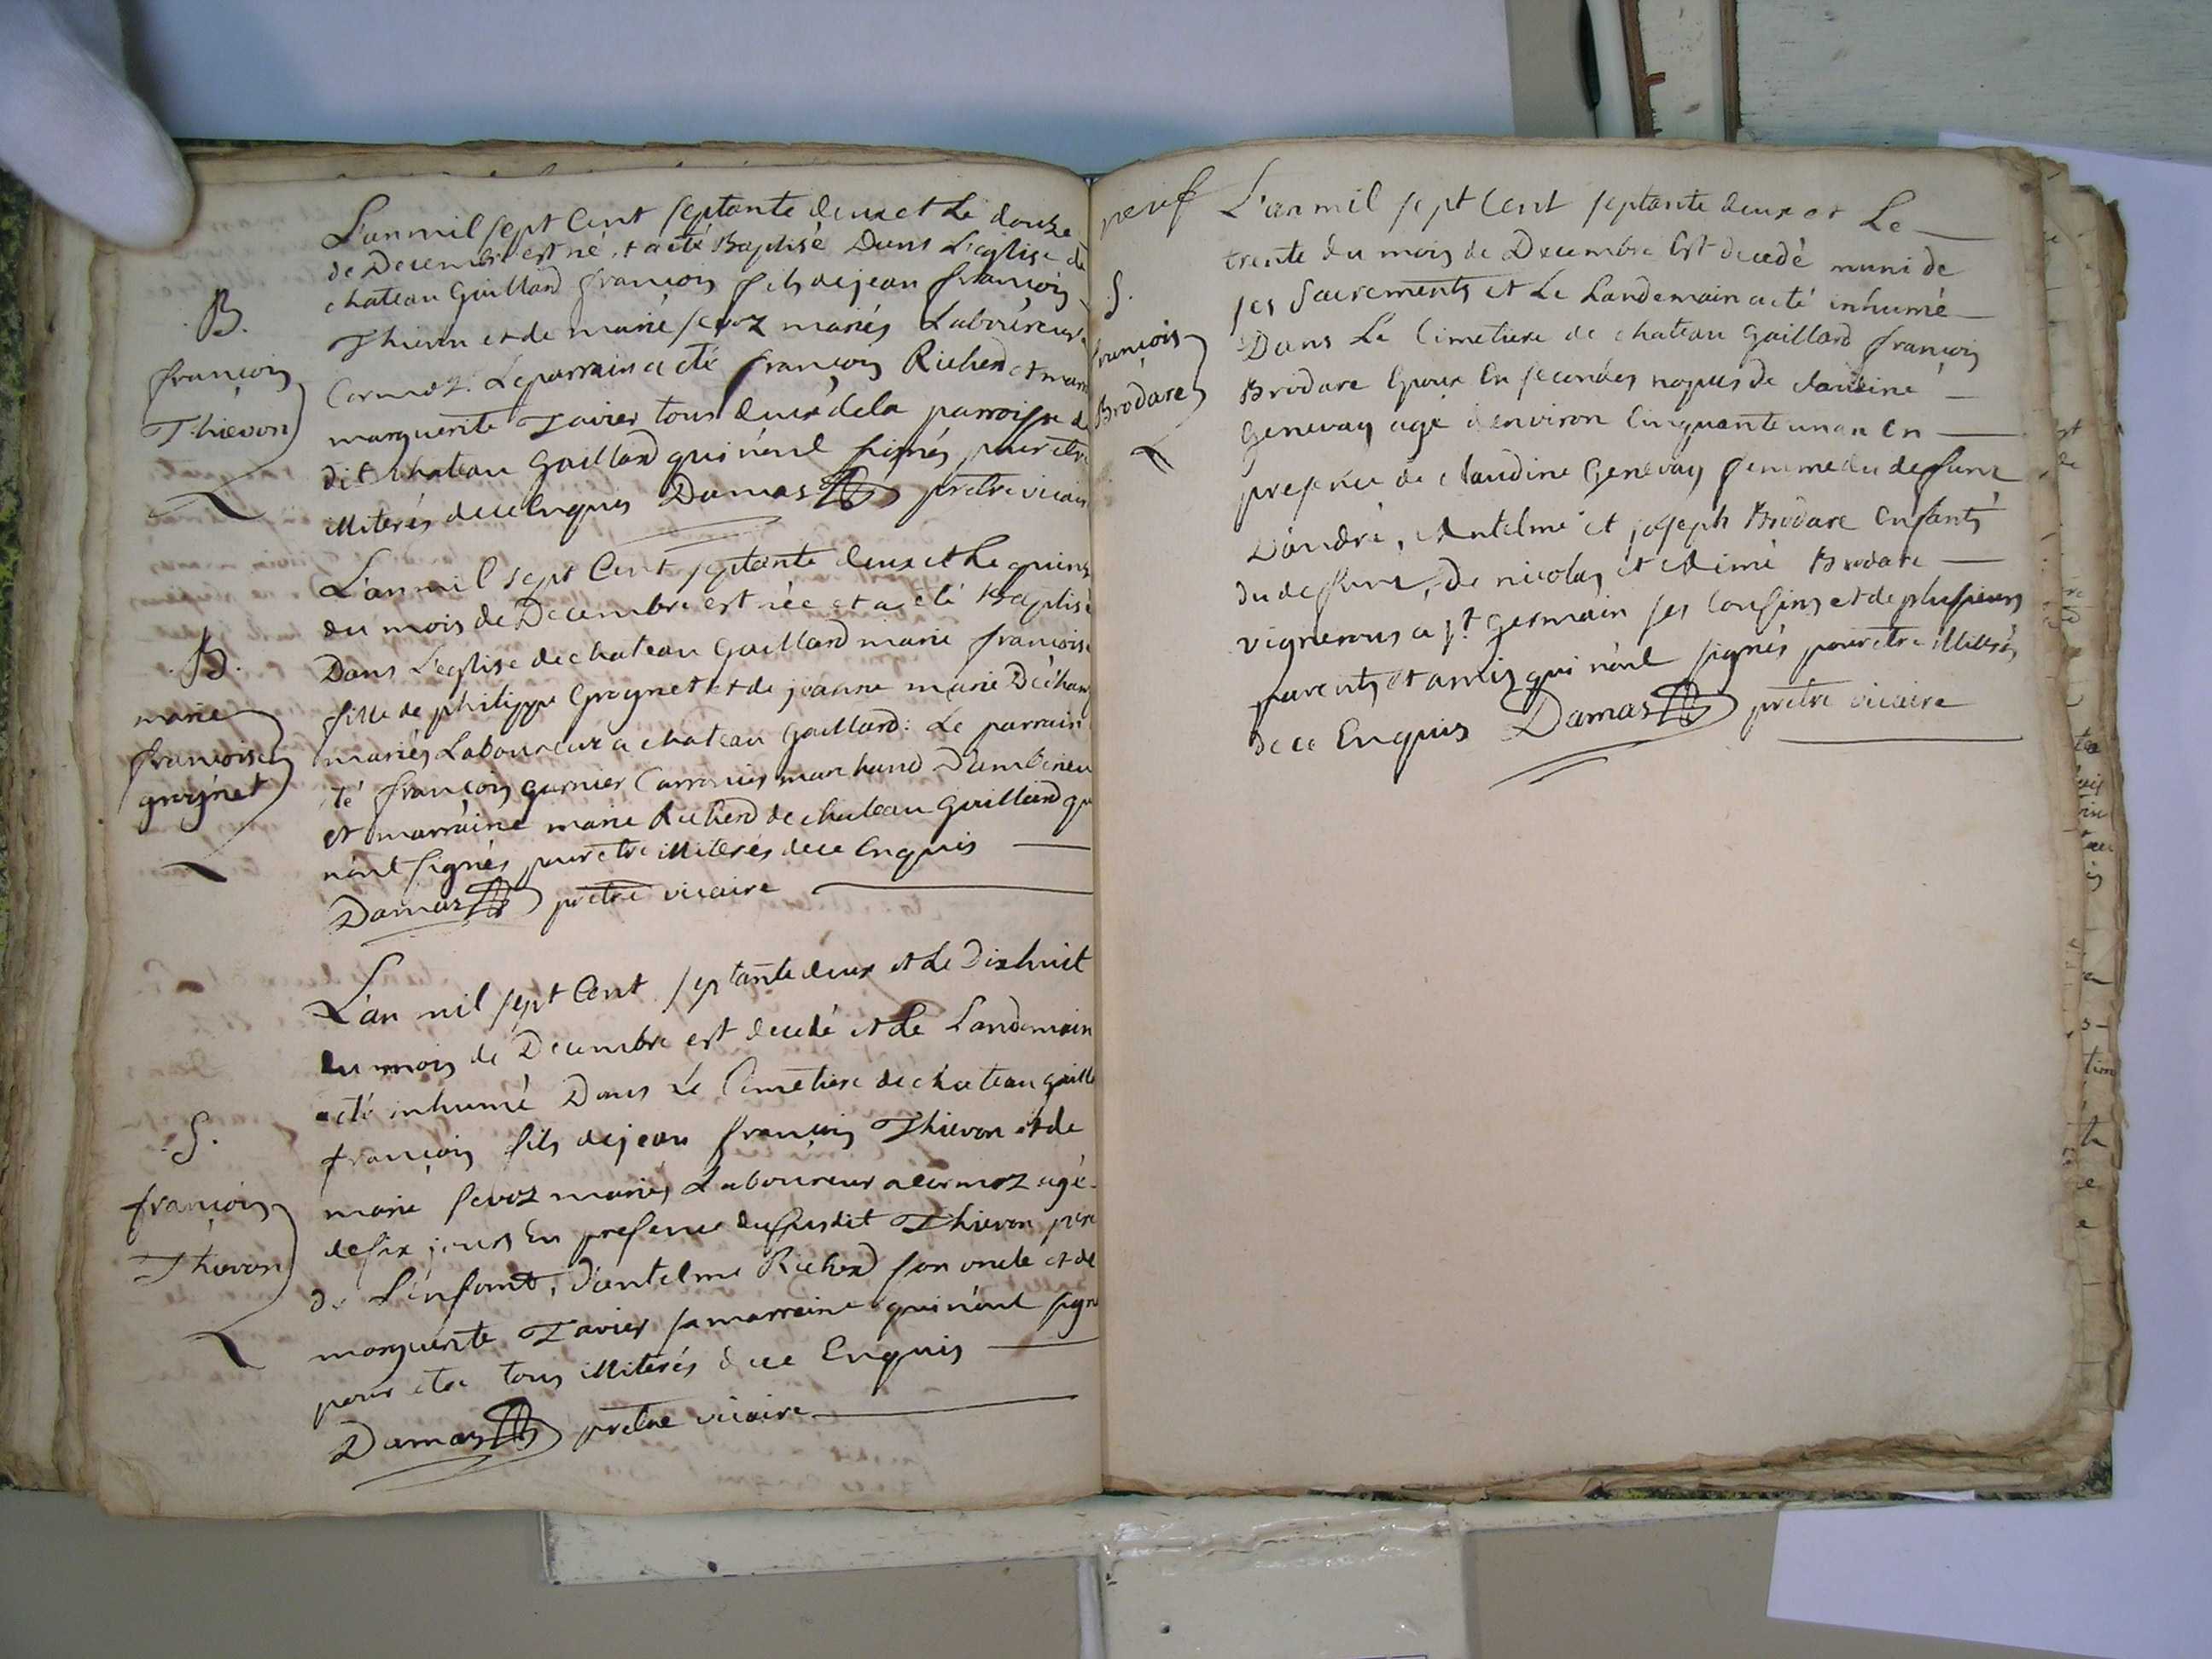 B.
françois
Thievon
L'an mil sept Cent septante deux et Le douze
de Decembre est né et a eté Baptisé Dans L'eglise de
chateau Gaillard françois fils de jean françois
Thievon et de marie sevoz mariés Laboureur a
Cormoz. Le parrain a eté françois Richerd et marr
marguerite Tavier tous deux de la parroisse de
dit chateau Gaillard qui n'ont signés pour etre
illiterés de ce Enquis Damas prêtre vicaire
B.
marie
françoise
groignet
L'an mil sept Cent septante deux et Le quinz
du mois de Decembre est née et a eté Baptisé
Dans L'eglise de chateau Gaillard marie françoise
fille de philippe Groignet et de jeanne marie Déchan
mariés Laboureur a chateau Gaillard: Le parrain
té françois garnier Carronier marchand D'ambérieu
et marraine marie Richerd de chateau Gaillard qu
n'ont signés pour etre illiterés de ce Enquis
Damas prêtre vicaire
S.
françois
Thievon
L'an mil sept Cent septante deux et Le Dixhuit
du mois de Decembre est decedé et Le Landemain
a eté inhumé Dans Le Cimetiere de chateau gaill
françois fils de jean françois Thievon et de
marie sevoz mariés Laboureur a cormoz agé
de six jours En presence du susdit Thievon père
de L'enfant, d'antelme Richerd son oncle et de
marguerite Tavier sa marraine qui n'ont signé
pour etre tous illiterés de ce Enquis
Damas prêtre vicaire
neuf
S.
françois
Brodare
L'an mil sept Cent septante deux et Le
trente du mois de Decembre Est decedé muni de
ses Sacrements et Le Landemain a eté inhumé
Dans Le Cimetiere de chateau Gaillard françois
Brodare Epoux En secondes nopces de claudine
Genevay agé d'environ Cinquante un an En
presence de claudine Genevay femme du defunt
D'andré, Antelme et joseph Brodare Enfants
du deffunt, De nicolas et Aimé Brodare
vignerons a St. Germain ses Cousins et de plusieurs
parents et amis qui n'ont signés pour etre illiterés
de ce Enquis Damas prêtre vicaire